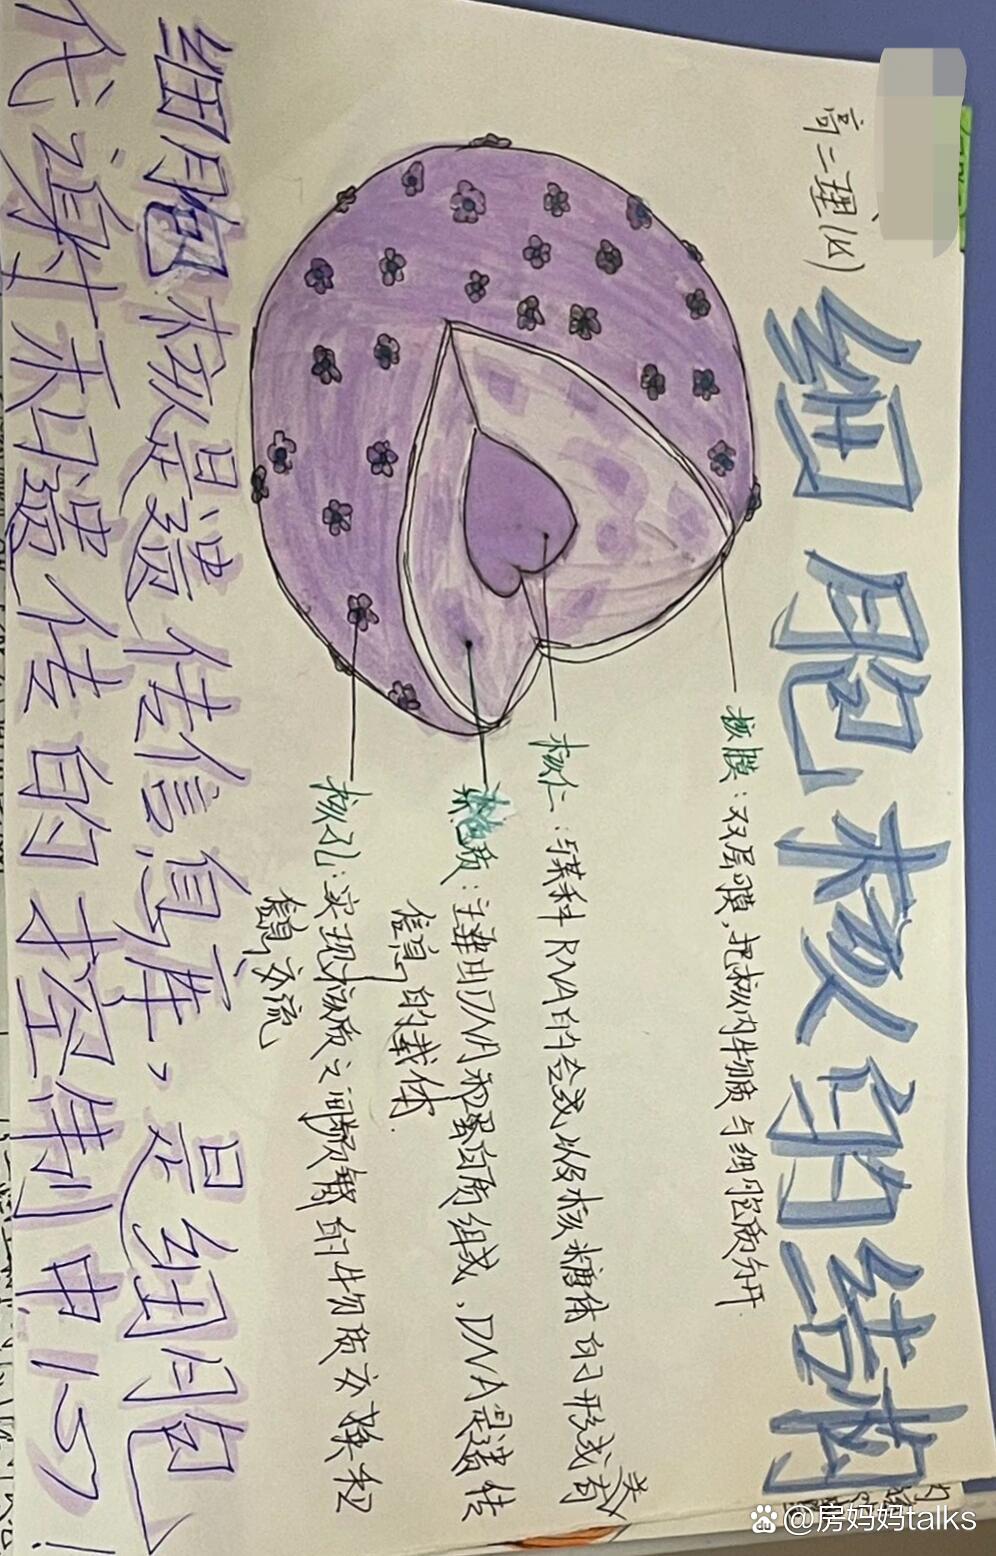 高二理(幺)
细胞核的结构
核膜：双层膜，把核内物质与细胞质分开.
核仁：与某种RNA的合成以及核糖体的形成有
关
染色质：主要由DNA和蛋白质组成，DNA是遗传
信息的载体.
核孔：实现核质之间频繁的物质交换和
信息交流
细胞核是遗传信息库，是细胞
代谢和遗传的控制中心！
@房妈妈talks